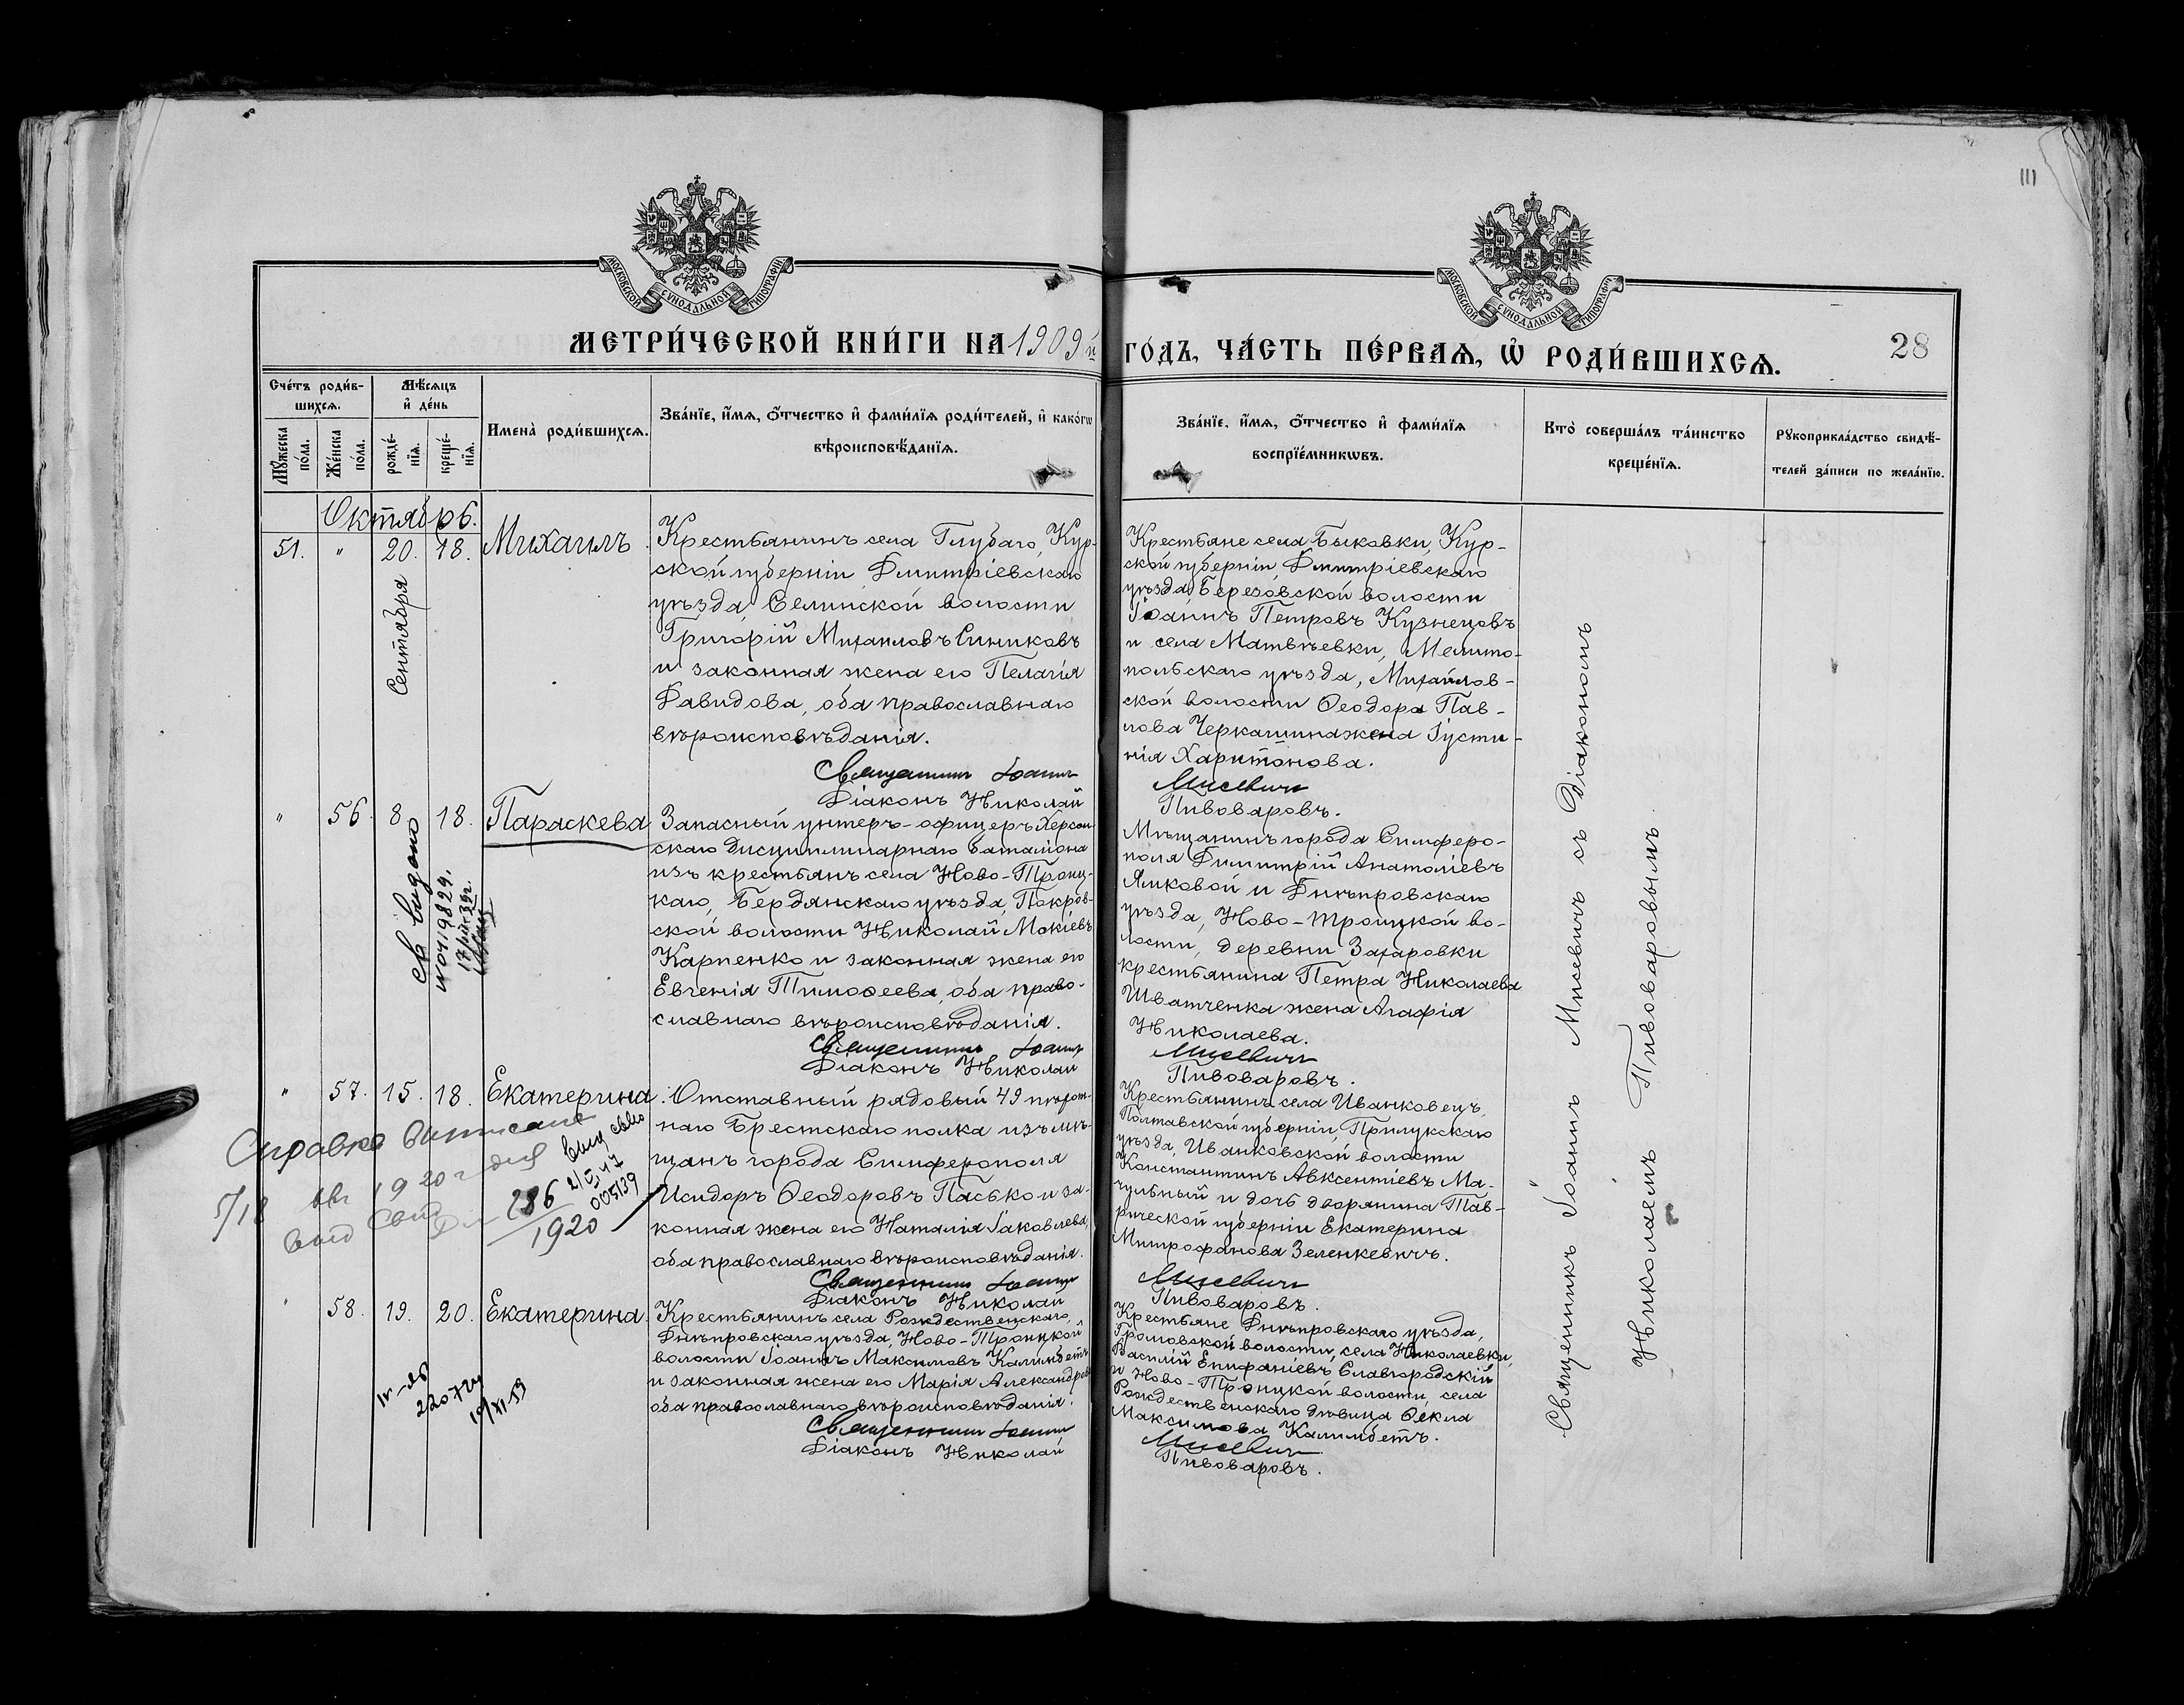 111
МОСКОВСКОЙ СУНОДАЛЬНОЙ ТИПОГРАФІИ
МОСКОВСКОЙ СУНОДАЛЬНОЙ ТИПОГРАФІИ
МЕТРИ́ЧЕСКОЙ КНИ́ГИ НА 1909й ГО́ДЪ, ЧА́СТЬ ПЕ́РВАѦ, Ѽ РОДИ́ВШИХСѦ.
28
Сче́тъ роди́в-
шихсѧ.
Мѣ́сѧцъ
и҆ де́нь
Мꙋ́жеска по́ла.
Же́нска по́ла.
рожде́-нїѧ.
креще́-нїѧ.
Имена̀ роди́вшихсѧ.
Зва́нїе, и҆́мѧ, ѻ҆́тчество и҆ фами́лїѧ роди́телей, и҆ како́гѡ
вѣроисповѣ́данїѧ.
Зва́нїе, и҆́мѧ, ѻ҆́тчество и҆ фами́лїѧ
воспрїе́мникѡвъ.
Кто̀ соверша́лъ та́инство
креще́нїѧ.
Рꙋкоприкла́дство свидѣ́-
телей за́писи по жела́нїю.
Октябрь.
51. " 20. 18. Михаилъ.
Сентября
Крестьянинъ села Глубаго, Кур-
ской губерніи Дмитріевскаго
уѣзда, Селинской волости
Григорій Михаиловъ Синиковъ
и законная жена его Пелагія
Давидова, оба православнаго
вѣроисповѣданія.
Крестьяне села Быковки, Кур-
ской губерніи, Дмитріевскаго
уѣзда, Березовской волости
Іоаннъ Петровъ Кузнецовъ
и села Матвѣевки, Мелито-
польскаго уѣзда, Михайлов-
ской волости Ѳеодора Пав-
лова Черкашина жена Іусти-
нія Харитонова.
Священникъ Іоаннъ Мисевичъ
Діаконъ Николай Пивоваровъ.
" 56. 8. 18. Параскева
Запасный унтеръ-офицеръ Херсон-
скаго дисциплинарнаго баталіона
изъ крестьянъ села Ново-Троиц-
каго, Бердянскаго уѣзда, Покров-
ской волости Николай Мокіевъ
Карпенко и законная жена его
Евгенія Тимоѳеева, оба право-
славнаго вѣроисповѣданія.
Мѣщанинъ города Симферо-
поля Димитрій Анатоліевъ
Яиковой и Днѣпровскаго
уѣзда, Ново-Троицкой во-
лости, деревни Захаровки
крестьянина Петра Николаева
Шватченка жена Агафія
Николаева.
Священникъ Іоаннъ Мисевичъ
Діаконъ Николай Пивоваровъ.
" 57. 15. 18. Екатерина.
Отставный рядовый 49 пѣхот-
наго Брестскаго полка изъ мѣ-
щанъ города Симферополя
Исидоръ Ѳеодоровъ Пасько и за-
конная жена его Наталія Іаковлева,
оба православнаго вѣроисповѣданія.
Справка
1920
286
1920
005139
Крестьянинъ села Иванковецъ,
Полтавской губерніи, Прилукскаго
уѣзда, Иванковской волости
Константинъ Авксентіевъ Ма-
чульный и дочь дворянина Тав-
рической губерніи Екатерина
Митрофанова Зеленкевичъ.
Священникъ Іоаннъ Мисевичъ
Діаконъ Николай Пивоваровъ.
58. 19. 20. Екатерина.
Крестьянинъ села Рождественскаго,
Днѣпровскаго уѣзда, Ново-Троицкой
волости Іоаннъ Максимовъ Калимбетъ
и законная жена его Марія Александрова
оба православнаго вѣроисповѣданія.
Крестьяне Днѣпровскаго уѣзда,
Громовской волости, села Николаевки,
Василій Епифаніевъ Славгородскій
и Ново-Троицкой волости, села
Рождественскаго дѣвица Ѳекла
Максимова Калимбетъ.
Священникъ Іоаннъ Мисевичъ
Діаконъ Николай Пивоваровъ.
Священникъ Іоаннъ Мисевичъ съ Діакономъ
Николаемъ Пивоваровымъ.